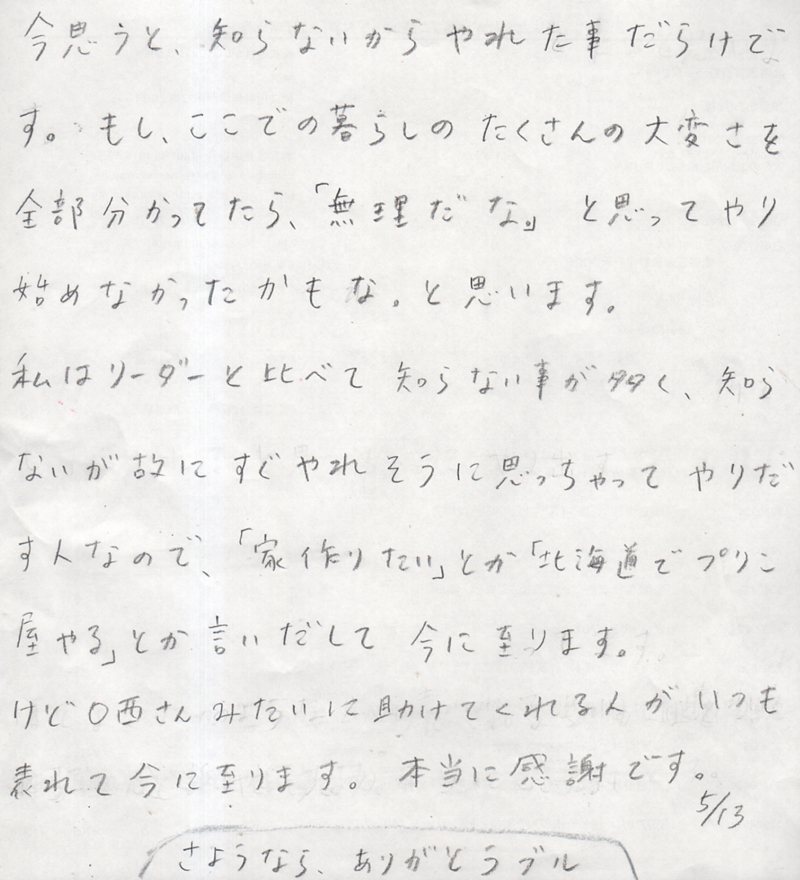 今思うと、知らないからやれた事だらけで
す。もし、ここでの暮らしのたくさんの大変さを
全部分かってたら、「無理だな。」と思ってやり
始めなかったかもな。と思います。
私はリーダーと比べて知らない事が多く、知ら
ないが故にすぐやれそうに思っちゃってやりだ
す人なので、「家作りたい」とか「北海道でプリン
屋やる」とか言いだして今に至ります。
けど〇西さんみたいに助けてくれる人がいつも
表れて今に至ります。本当に感謝です。
5/13
さようなら、ありがとうブル